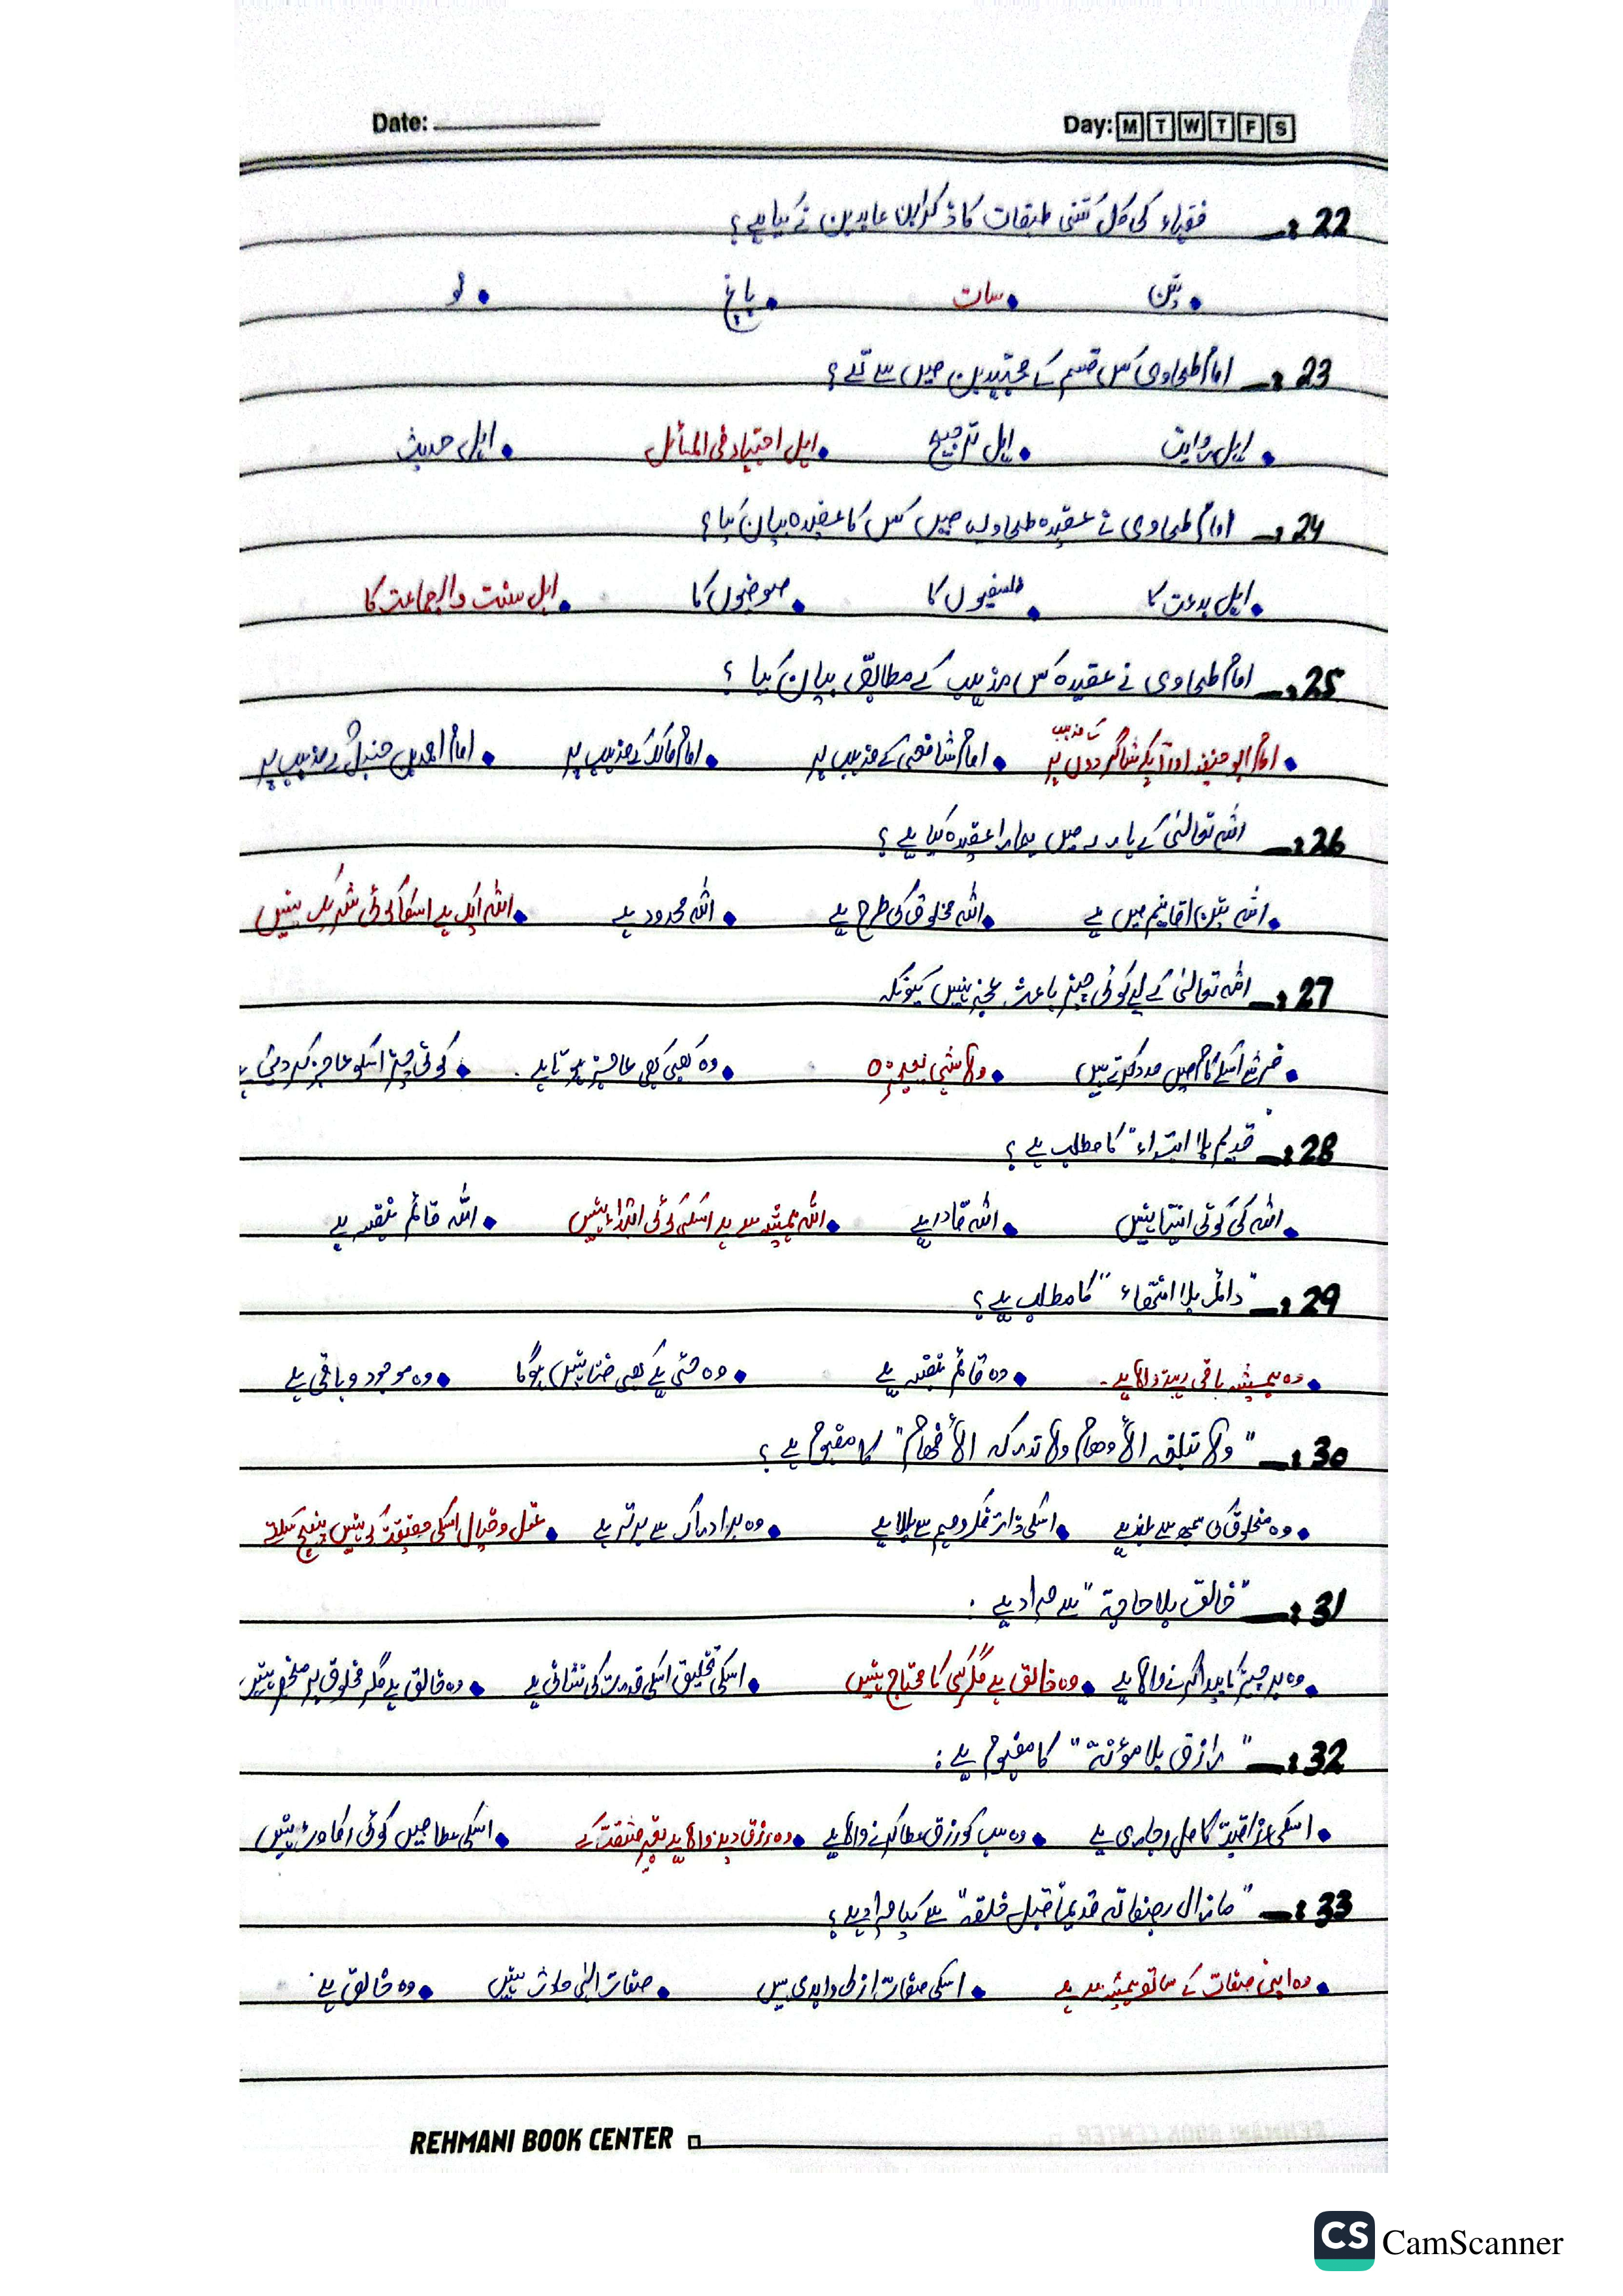 Date: Day: M T W T F S
22:_ فقہاء کی کل کتنی طبقات کا ذکر ابن عابدین نے کیا ہے؟
• تین • سات • پانچ • نو
23:_ امام طحاوی کس قسم کے مجتہدین میں سے تھے؟
• اہل روایت • اہل ترجیح • اہل اجتہاد فی المسائل • اہل حدیث
24:_ امام طحاوی نے عقیدہ طحاویہ میں کس کا عقیدہ بیان کیا؟
• اہل بدعت کا • فلسفیوں کا • صوفیوں کا • اہل سنت والجماعت کا
25:_ امام طحاوی نے عقیدہ کس مذہب کے مطابق بیان کیا ؟
• امام ابو حنیفہ اور آپکے شاگردوں کے مذہب پر • امام شافعی کے مذہب پر • امام مالک کے مذہب پر • امام احمد بن حنبل کے مذہب پر
26:_ اللہ تعالیٰ کے بارے میں ہمارا عقیدہ کیا ہے؟
• اللہ تین اقانیم میں ہے • اللہ مخلوق کی طرح ہے • اللہ محدود ہے • اللہ ایک ہے اسکا کوئی شریک نہیں
27:_ اللہ تعالیٰ کے لیے کوئی چیز باعث عجز نہیں کیونکہ
• فرشتے اسکے کام میں مدد کرتے ہیں • ولا شیء یعجزہ • وہ کبھی کبھی عاجز ہوتا ہے . • کوئی چیز اسکو عاجز کر دیتی ہے
28:_ "قدیم بلا ابتداء" کا مطلب ہے ؟
• اللہ کی کوئی انتہا نہیں • اللہ قادر ہے • اللہ ہمیشہ سے ہے اسکی کوئی ابتداء نہیں • اللہ قائم بنفسہ ہے
29:_ "دائم بلا انتھاء" کا مطلب ہے؟
• وہ ہمیشہ باقی رہنے والا ہے۔ • وہ قائم بنفسہ ہے • وہ حتی کے بھی فنا نہیں ہوگا • وہ موجود و باقی ہے
30:_ "ولا تبلغہ الأوھام ولا تدرکہ الأفھام" کا مفہوم ہے ؟
• وہ مخلوق کی سمجھ سے بلند ہے • اسکی ذات فکر و فہم سے بالا ہے • وہ ہر ادراک سے برتر ہے • عقل و خیال اسکی حقیقت کو نہیں پہنچ سکتے
31:_ "خالق بلا حاجة" سے مراد ہے :
• وہ ہر چیز کا پیدا کرنے والا ہے • وہ خالق ہے مگر کسی کا محتاج نہیں • اسکی تخلیق اسکی قدرت کی نشانی ہے • وہ خالق ہے مگر مخلوق پر منحصر نہیں
32:_ "رازق بلا مؤنة" کا مفہوم ہے :
• اسکی رزاقیت کامل و جاری ہے • وہ سب کو رزق عطا کرنے والا ہے • وہ رزق دینے والا ہے بغیر مشقت کے • اسکی عطا میں کوئی رکاوٹ نہیں
33:_ "مازال بصفاتہ قدیماً قبل خلقہ" سے کیا مراد ہے؟
• وہ اپنی صفات کے ساتھ ہمیشہ سے ہے • اسکی صفات ازلی و ابدی ہیں • صفات الٰہی حادث نہیں • وہ خالق ہے
REHMANI BOOK CENTER
CS CamScanner